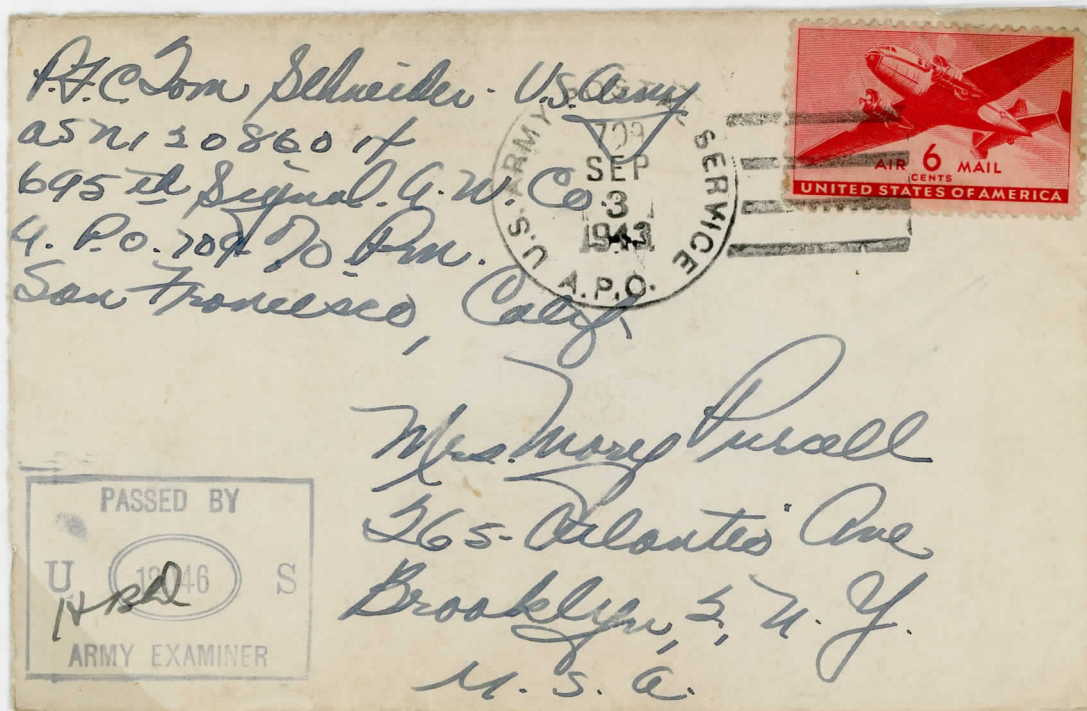 P.F.C. Tom Schneider - U.S. Army
695th Signal. A. W. Co.
A. P. O. 709 % P.m.
San Francisco, Calif.
U.S. ARMY POSTAL SERVICE
709
SEP
3
1943
A.P.O.
AIR 6 MAIL
CENTS
UNITED STATES OF AMERICA
Mrs. Mary Purcell
265 - Atlantic Ave
Brooklyn, 2, N. Y.
U. S. A.
PASSED BY
U S
ARMY EXAMINER